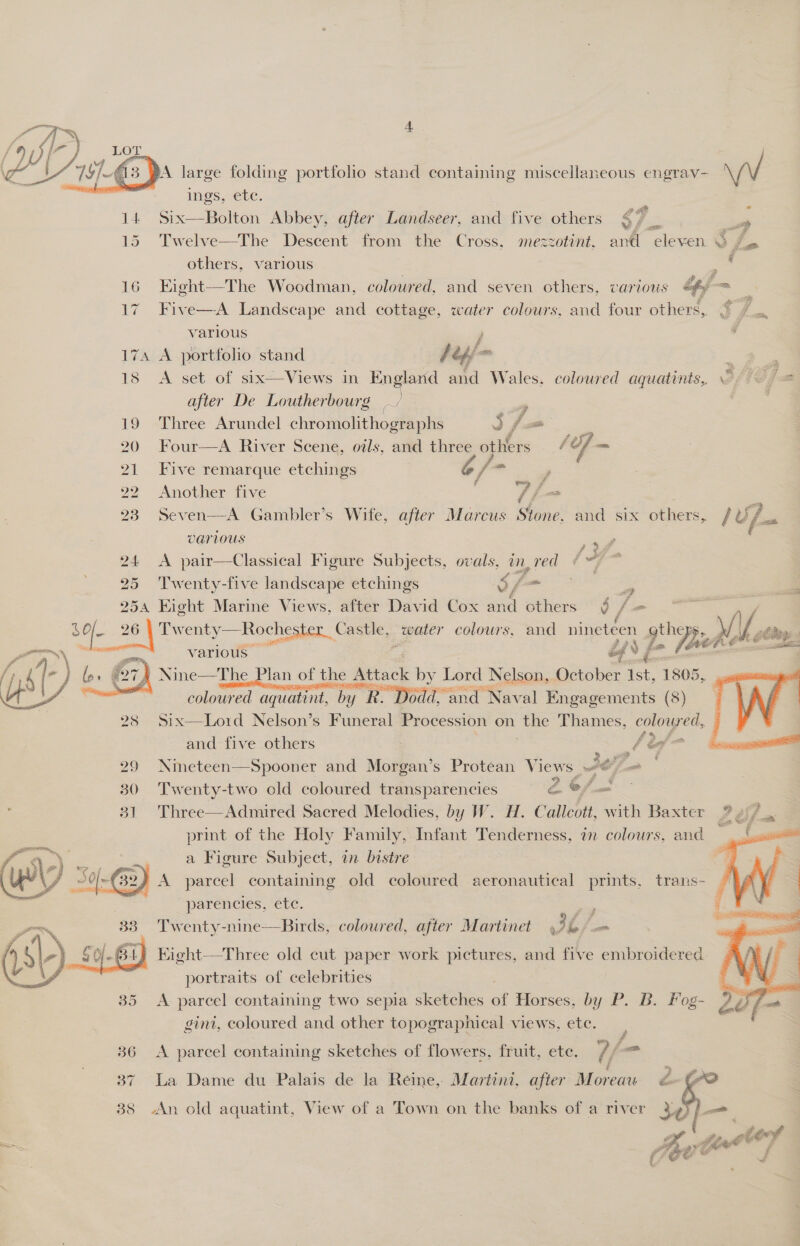 4
LOT
13 A large folding portfolio stand containing miscellaneous engrav- W
ings, etc.
14 Six—Bolton Abbey, after Landseer, and five others
15 Twelve—The Descent from the Cross, mezzotint, and eleven
others, various
16 Eight—The Woodman, coloured, and seven others, various
17 Five—A Landscape and cottage, water colours, and four others,
various
17A A portfolio stand
18 A set of six—Views in England and Wales, coloured aquatints,
after De Loutherbourg
19 Three Arundel chromolithographs
20 Four—A River Scene, oils, and three others
21 Five remarque etchings 6/-
22 Another five 7/-
23 Seven—A Gambler's Wife, after Marcus Stone, and six others,
various
24 A pair—Classical Figure Subjects, ovals, in red
25 Twenty-five landscape etchings
25A Eight Marine Views, after David Cox and others
30/- 26 Twenty—Rochester Castle, water colours, and nineteen others,
various
27 Nine—The Plan of the Attack by Lord Nelson, October 1st, 1805,
coloured aquatint, by R. Dodd, and Naval Engagements (8) W
28 Six—Lord Nelson's Funeral Procession on the Thames, coloured,
and five others
29 Nineteen—Spooner and Morgan's Protean Views
30 Twenty-two old coloured transparencies
31 Three—Admired Sacred Melodies, by W. H. Callcott, with Baxter
print of the Holy Family, Infant Tenderness, in colours, and
a Figure Subject, in bistre
30/- 32 A parcel containing old coloured aeronautical prints, trans- W
parencies, etc.
33 Twenty-nine—Birds, coloured, after Martinet
34 Eight—Three old cut paper work pictures, and five embroidered W
portraits of celebrities
35 A parcel containing two sepia sketches of Horses, by P. B. Fog-
gini, coloured and other topographical views, etc.
36 A parcel containing sketches of flowers, fruit, etc. 7/-
37 La Dame du Palais de la Reine, Martini, after Moreau
38 An old aquatint, View of a Town on the banks of a river